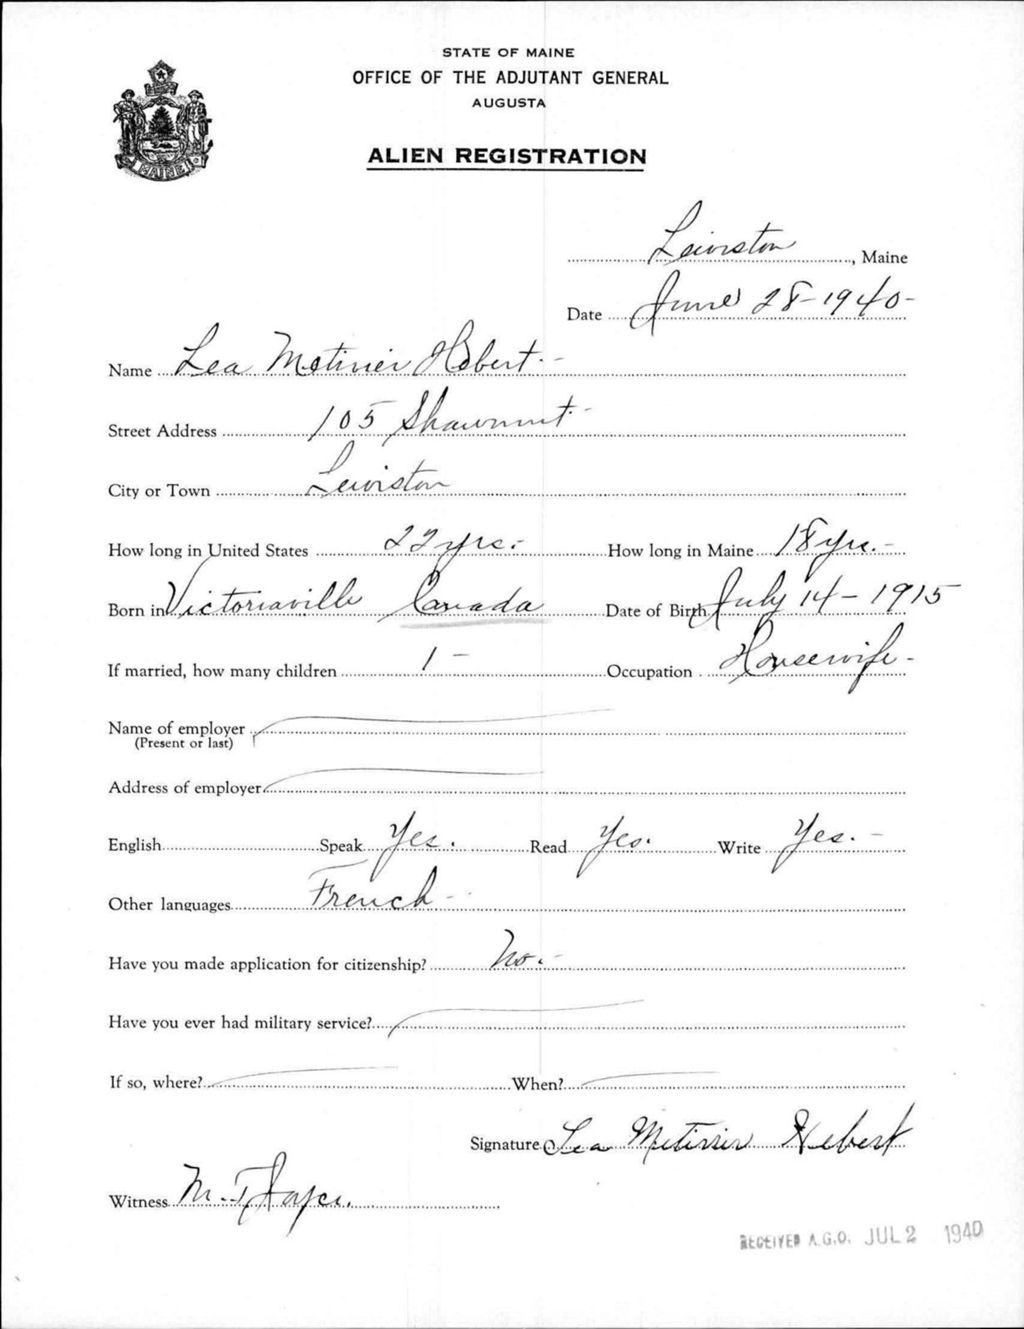 STATE OF MAINE
OFFICE OF THE ADJUTANT GENERAL
AUGUSTA
ALIEN REGISTRATION
MAINE
Lewiston, Maine
Date June 28-1940-
Name Lea Metivier Hebert-
Street Address 105 Shawmut-
City or Town Lewiston
How long in United States 22 yrs. How long in Maine 18 yrs.-
Born in Victoriaville Canada Date of Birth July 14-1915
If married, how many children 1- Occupation Housewife-
Name of employer
(Present or last)
Address of employer
English Speak Yes. Read Yes. Write Yes.-
Other languages French-
Have you made application for citizenship? No.-
Have you ever had military service?
If so, where? When?
Signature Lea Metivier Hebert
Witness M.
RECEIVED A.G.O. JUL 2 1940